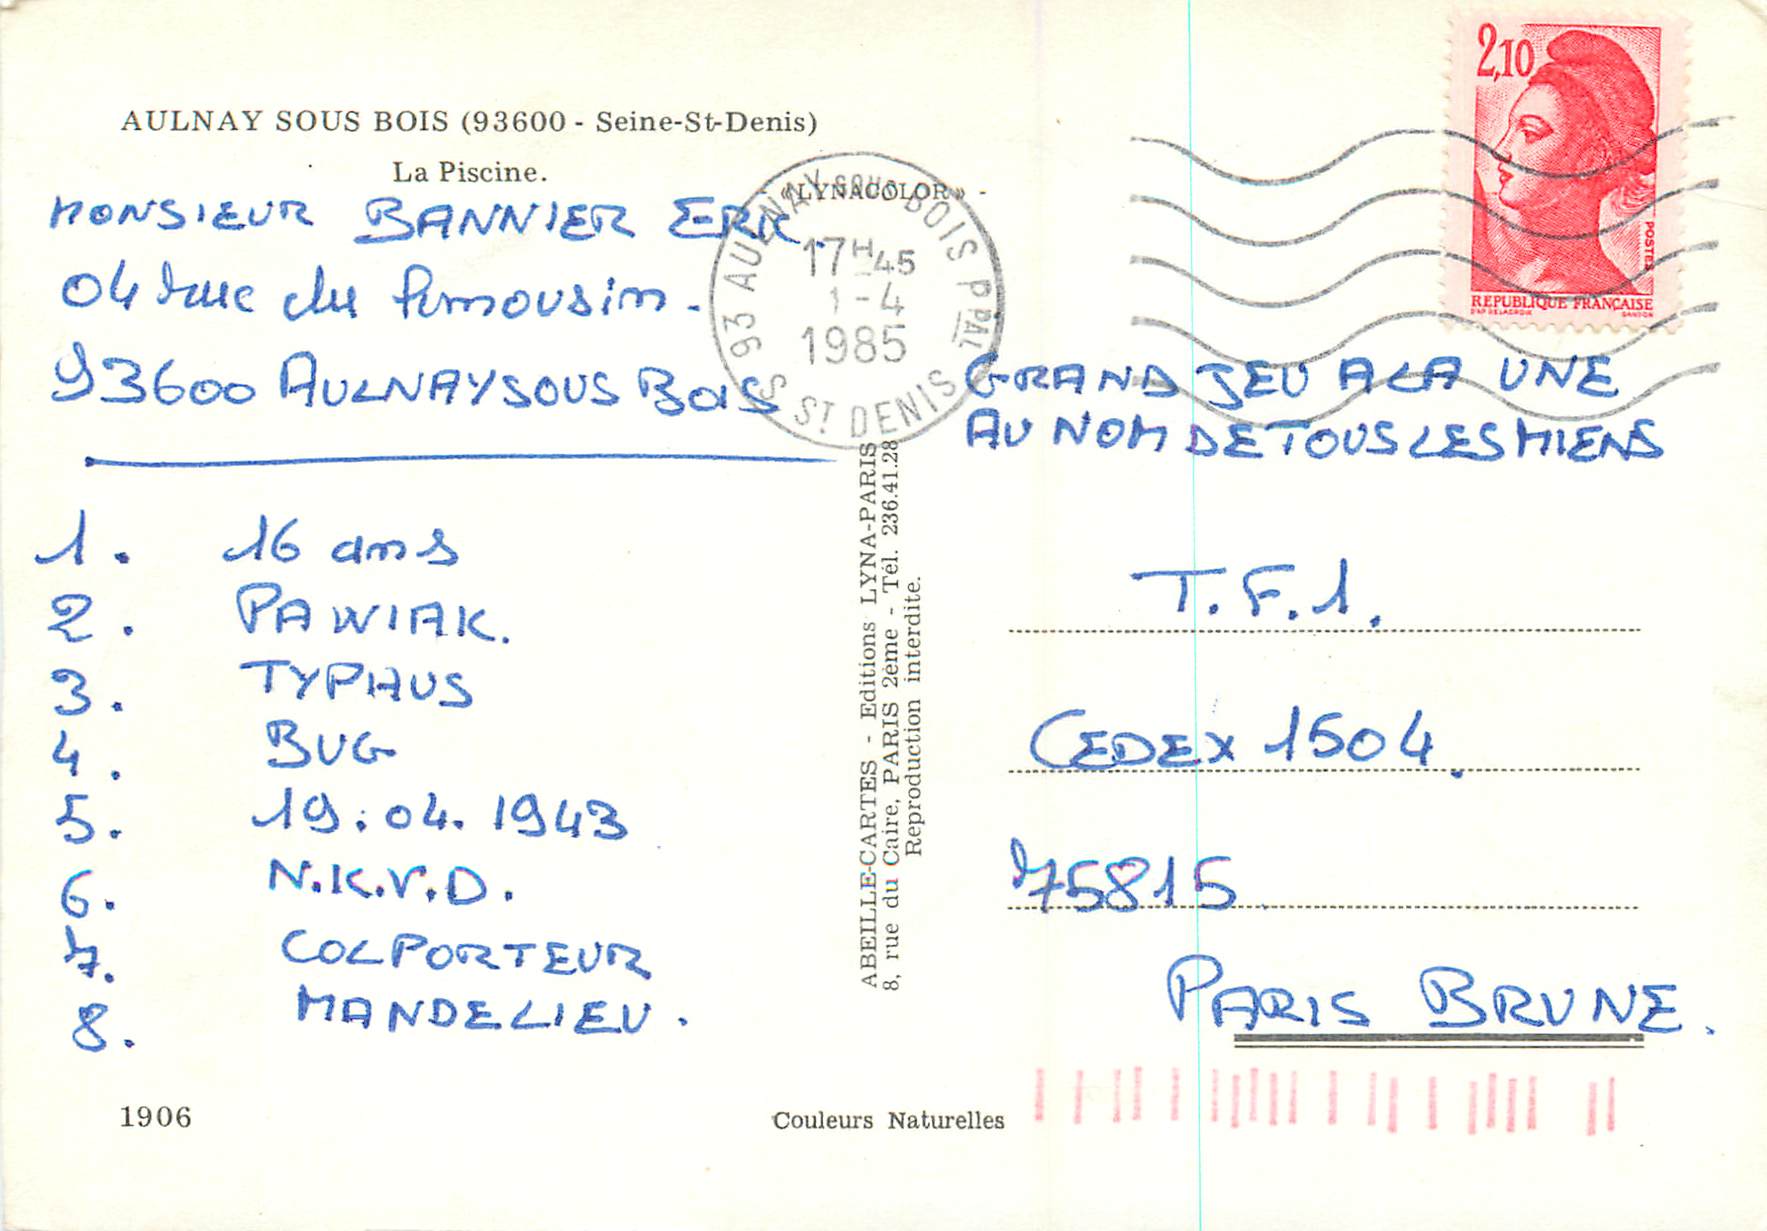 AULNAY SOUS BOIS (93600 - Seine-St-Denis)
La Piscine.
«LYNACOLOR» -
MONSIEUR BANNIER ERIK.
04 rue du limousin.
93600 AULNAY SOUS BOIS
1. 16 ans
2. PAWIAK.
3. TYPHUS
4. BUG
5. 19.04.1943
6. N.K.V.D.
7. COLPORTEUR
8. MANDELIEU.
1906
93 AULNAY SOUS BOIS PPAL
17H45
1-4
1985
S ST DENIS
ABEILLE-CARTES - Editions LYNA-PARIS
8, rue du Caire, PARIS 2ème - Tél. 236.41.28
Reproduction interdite.
Couleurs Naturelles
2,10
POSTES
REPUBLIQUE FRANÇAISE
D'AP. DELACROIX GANDON
GRAND JEU A LA UNE
AU NOM DE TOUS LES MIENS
T.F.1.
CEDEX 1504.
75815
PARIS BRUNE.